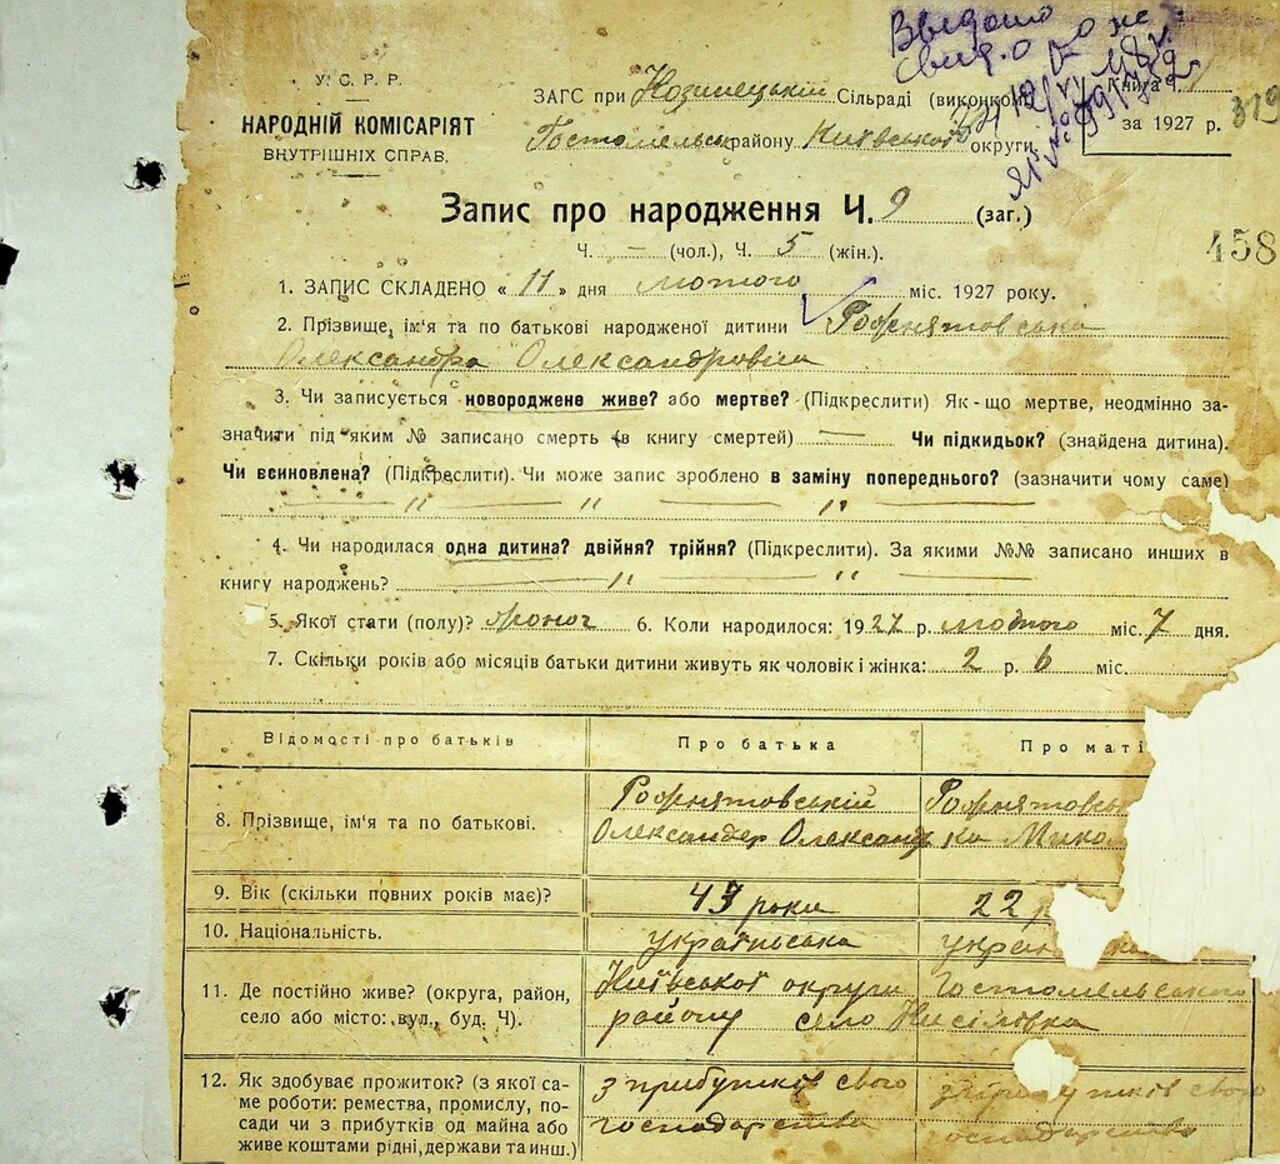 Введено
свид. о
У. С. Р. Р.
НАРОДНІЙ КОМІСАРІЯТ
ВНУТРІШНІХ СПРАВ.
ЗАГС при Сільраді (виконком)
району Київської округи
Книга ч.
за 1927 р.
319
Запис про народження Ч. 9 (заг.)
458
Ч. — (чол.), Ч. 5 (жін.).
1. ЗАПИС СКЛАДЕНО « 11 » дня лютого міс. 1927 року.
2. Прізвище, ім'я та по батькові народженої дитини
Олександра Олександровна
3. Чи записується новороджене живе? або мертве? (Підкреслити) Як-що мертве, неодмінно за-
значити під яким № записано смерть (в книгу смертей) — Чи підкидьок? (знайдена дитина).
Чи всиновлена? (Підкреслити). Чи може запис зроблено в заміну попереднього? (зазначити чому саме)
— " — " — " —
4. Чи народилася одна дитина? двійня? трійня? (Підкреслити). За якими №№ записано инших в
книгу народжень? — " — " —
5. Якої стати (полу)? 6. Коли народилося: 1927 р. лютого міс. 7 дня.
7. Скільки років або місяців батьки дитини живуть як чоловік і жінка: 2 р. 6 міс.
Відомості про батьків Про батька Про маті
8. Прізвище, ім'я та по батькові.
Олександер Олександ
9. Вік (скільки повних років має)? 43 роки 22 р
10. Національність. українська україн ка
11. Де постійно живе? (округа, район, село або місто: вул., буд. Ч). Київської округи Гостомельського
району село
12. Як здобуває прожиток? (з якої са-
ме роботи: ремества, промислу, по-
сади чи з прибутків од майна або
живе коштами рідні, держави та инш.)
з прибутків свого
господарства
з прибутків свого
господарства